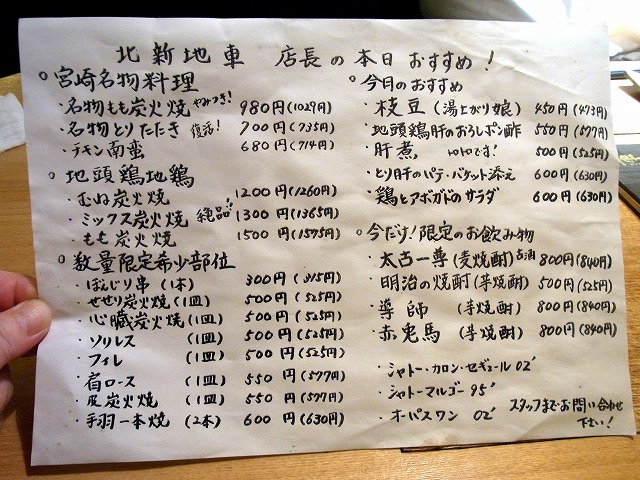 北新地車 店長の本日おすすめ!
○宮崎名物料理
・名物もも炭火焼 やみつき! 980円(1029円)
・名物とりたたき 復活! 700円(735円)
・チキン南蛮 680円(714円)
○地頭鶏地鶏
・むね炭火焼 1200円(1260円)
・ミックス炭火焼 絶品!! 1300円(1365円)
・もも炭火焼 1500円(1575円)
○数量限定希少部位
・ぼんじり串(1本) 300円(315円)
・せせり炭火焼(1皿) 500円(525円)
・心臓炭火焼(1皿) 500円(525円)
・ソリレス(1皿) 500円(525円)
・フィレ(1皿) 500円(525円)
・肩ロース(1皿) 550円(577円)
・皮炭火焼(1皿) 550円(577円)
・手羽一本焼(2本) 600円(630円)
○今日のおすすめ
・枝豆(湯上がり娘) 450円(473円)
・地頭鶏肝のおろしポン酢 550円(577円)
・肝煮 500円(525円)
・とり肝のパテ・バケット添え 600円(630円)
・鶏とアボガドのサラダ 600円(630円)
○今だけ!限定のお飲み物
・太古一尊(麦焼酎)古酒 800円(840円)
・明治の焼酎(芋焼酎) 500円(525円)
・導師(芋焼酎) 800円(840円)
・赤兎馬(芋焼酎) 800円(840円)
・シャトー・カロン・セギュール 02'
・シャトーマルゴー 95'
・オーパスワン 02'
スタッフまでお問い合わせ
下さい!